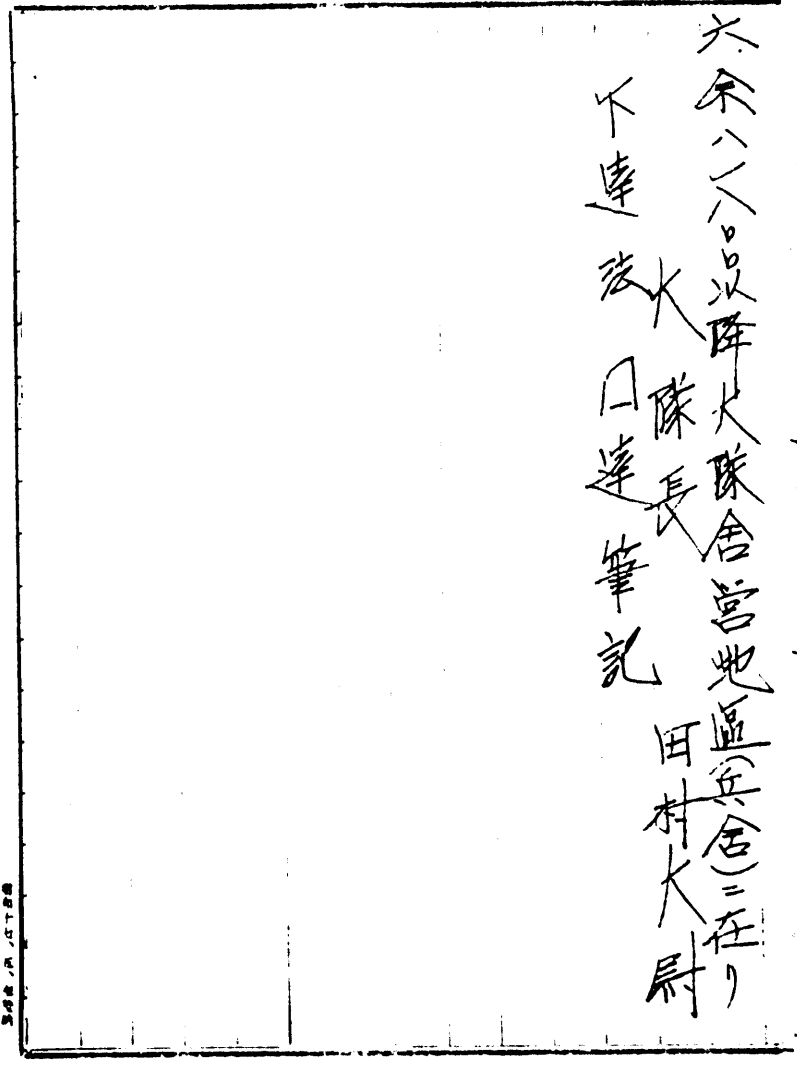 六、余ハ一八〇〇以降大隊舍営地區(兵舍)ニ在リ
大隊長 田村大尉
下達法 口達筆記